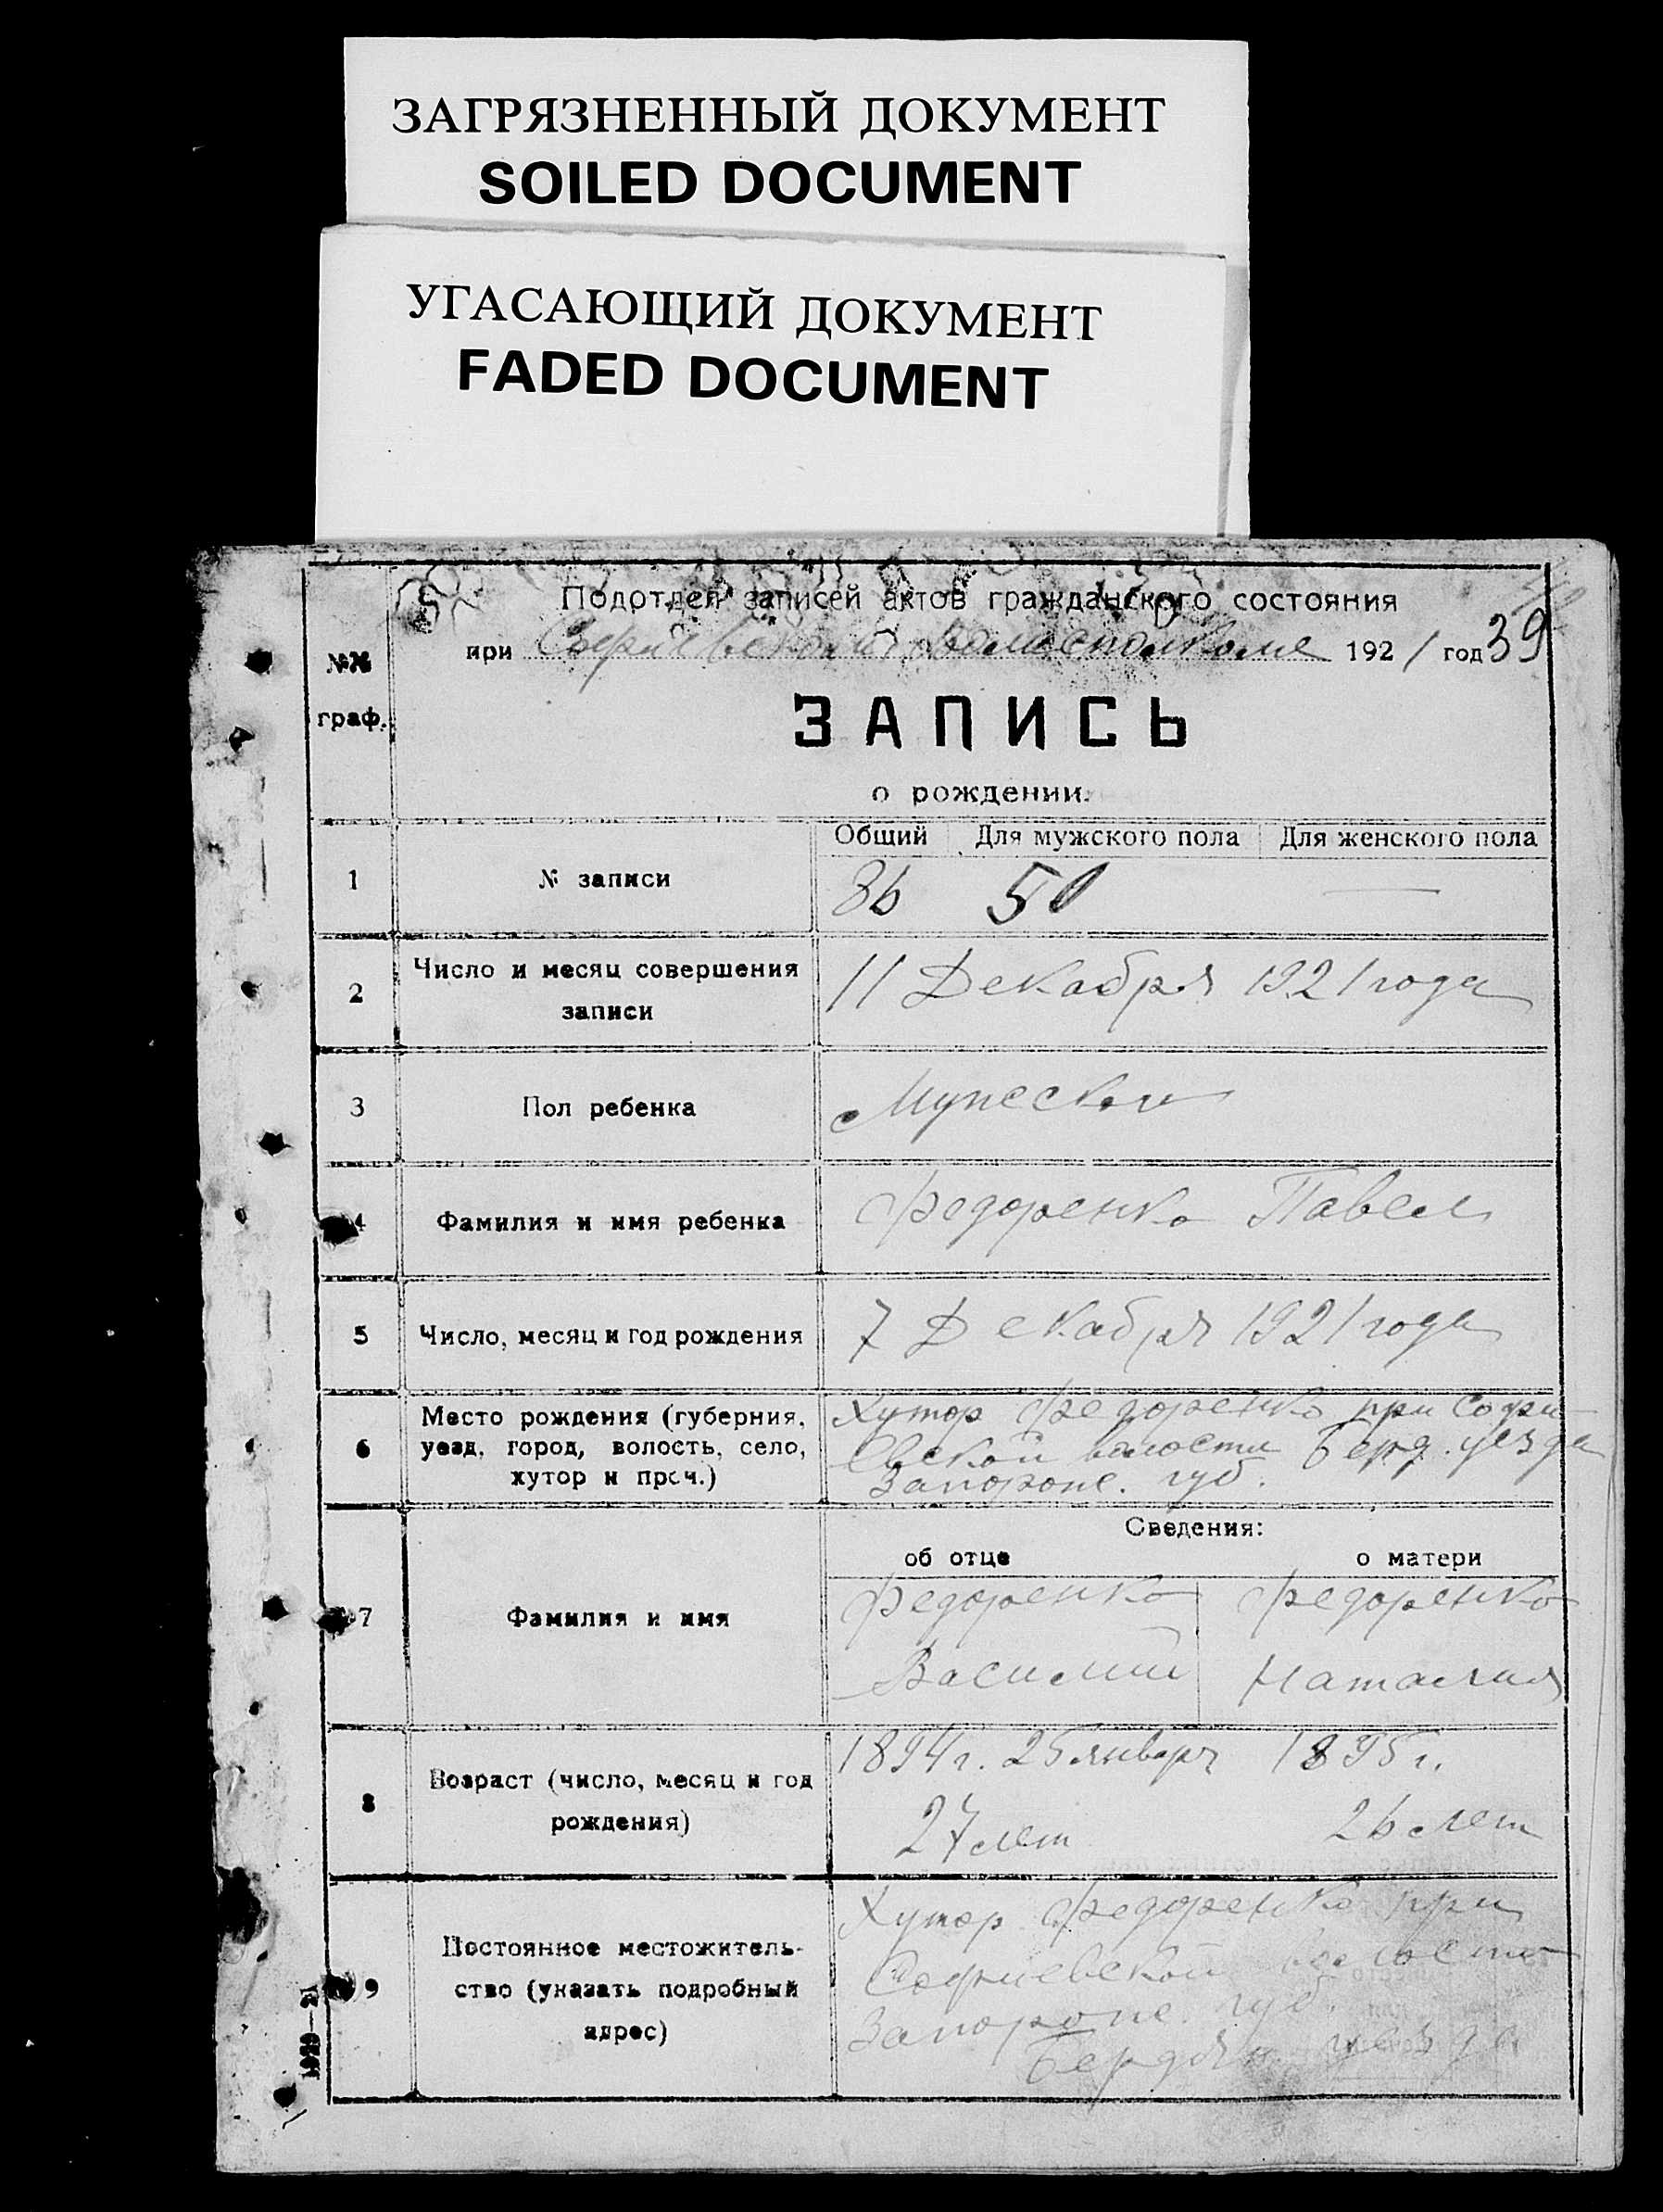 ЗАГРЯЗНЕННЫЙ ДОКУМЕНТ
SOILED DOCUMENT
УГАСАЮЩИЙ ДОКУМЕНТ
FADED DOCUMENT
Подотдел записей актов гражданского состояния
при Софиевском Волисполкоме 1921 год 39
№№ граф.
ЗАПИСЬ
о рождении.
Общий Для мужского пола Для женского пола
1 № записи 86 50 —
2 Число и месяц совершения записи 11 Декабря 1921 года
3 Пол ребенка Мужеской
4 Фамилия и имя ребенка Федоренко Павел
5 Число, месяц и год рождения 7 Декабря 1921 года
6 Место рождения (губерния, уезд, город, волость, село, хутор и проч.)
Хутор Федоренко при Софи-
евской волости Берд. уезда
Запорож. губ.
Сведения:
об отце о матери
7 Фамилия и имя
Федоренко Федоренко
Василий Наталия
8 Возраст (число, месяц и год рождения)
1894 г. 25 январ 1895 г.
27 лет 26 лет
9 Постоянное местожитель-
ство (указать подробный
адрес)
Хутор Федоренко при
Софиевской волости
Запорож. губ.
Бердян. уезда